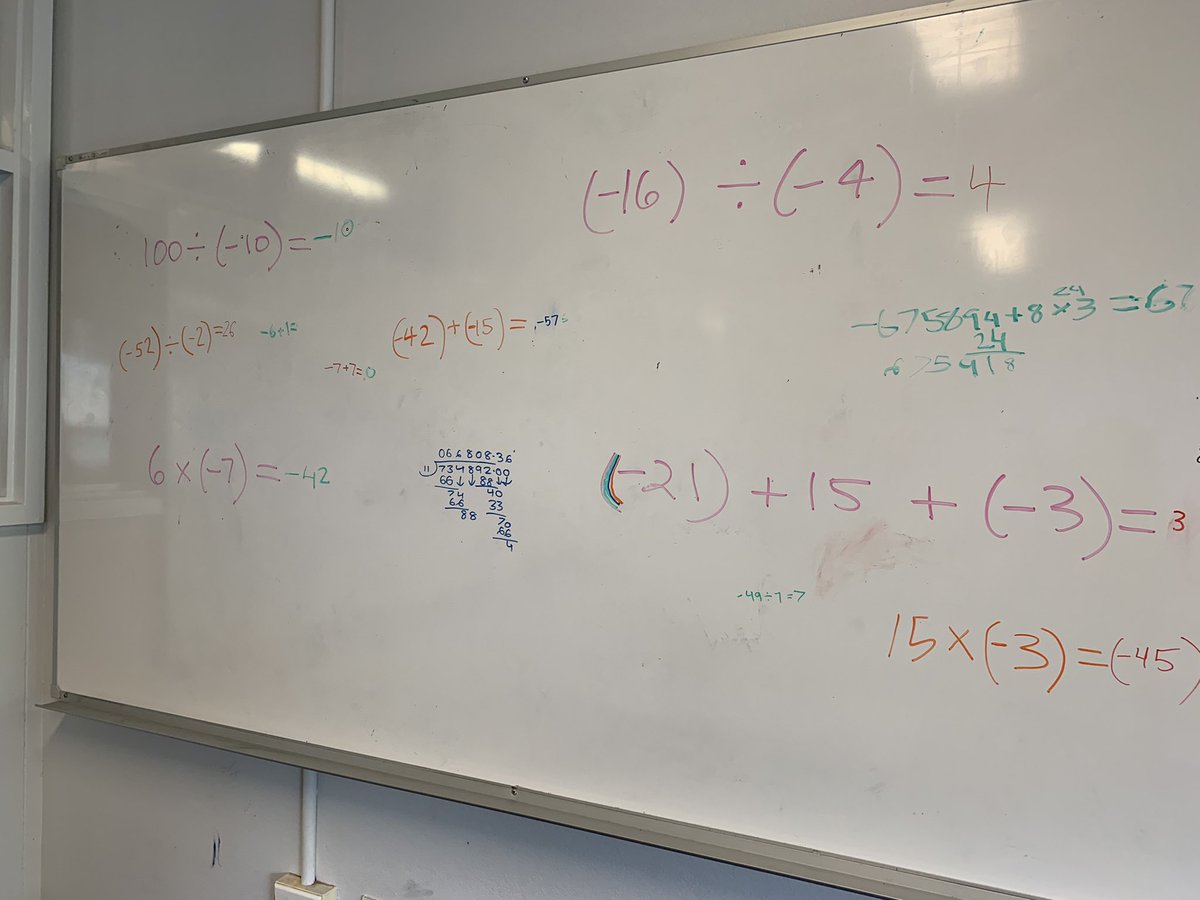 (-16) ÷ (-4) = 4
100 ÷ (-10) = -10
(-52) ÷ (-2) = 26
-6÷1=
(-42) + (-15) = -57
-7+7=0
24
-675894+8×3=67
24
675918
6 × (-7) = -42
066808.36
11)734892.00
66 88
74 40
66 33
88 70
66
4
(-21) + 15 + (-3) = 3
-49÷7=7
15 × (-3) = (-45)